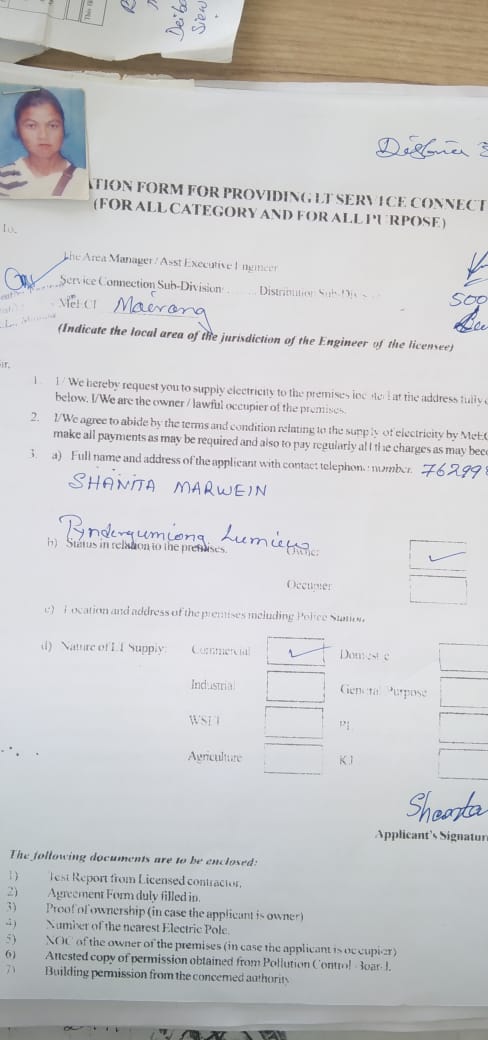 Distric
ATION FORM FOR PROVIDING LT SERVICE CONNECT
(FOR ALL CATEGORY AND FOR ALL PURPOSE)
To,
The Area Manager / Asst Executive Engineer
Service Connection Sub-Division ........ Distribution Sub-Div
MeECL Mairang
500
(Indicate the local area of the jurisdiction of the Engineer of the licensee)
ir,
1. I / We hereby request you to supply electricity to the premises located at the address fully
below. I/We are the owner / lawful occupier of the premises.
2. I/We agree to abide by the terms and condition relating to the supply of electricity by MeEC
make all payments as may be required and also to pay regularly all the charges as may bec
3. a) Full name and address of the applicant with contact telephone number. 76299
SHANTA MARWEIN
Pyndengumiong Lumiew
b) Status in relation to the premises. Owner
Occupier
c) Location and address of the premises including Police Station
d) Nature of LT Supply: Commercial Domestic
Industrial General Purpose
WSLT PL
Agriculture KJ
Shanta
Applicant's Signatur
The following documents are to be enclosed:
1) Test Report from Licensed contractor.
2) Agreement Form duly filled in.
3) Proof of ownership (in case the applicant is owner)
4) Number of the nearest Electric Pole.
5) NOC of the owner of the premises (in case the applicant is occupier)
6) Attested copy of permission obtained from Pollution Control Board.
7) Building permission from the concerned authority